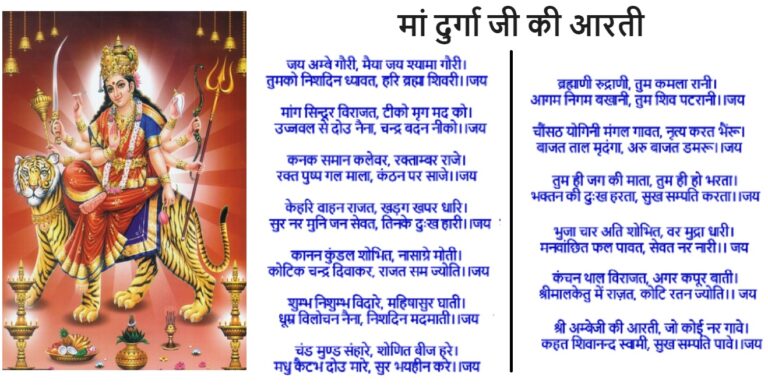 मां दुर्गा जी की आरती
जय अम्वे गौरी, मैया जय श्यामा गौरी।
तुमको निशदिन ध्यावत, हरि ब्रह्मा शिवरी।।जय
मांग सिन्दूर विराजत, टीको मृग मद को।
उज्जवल से दोउ नैना, चन्द्र बदन नीको।।जय
कनक समान कलेवर, रक्ताम्बर राजे।
रक्त पुष्प गल माला, कंठन पर साजे।।जय
केहरि वाहन राजत, खड्ग खपर धारि।
सुर नर मुनि जन सेवत, तिनके दुःख हारी।।जय
कानन कुंडल शोभित, नासाग्रे मोती।
कोटिक चन्द्र दिवाकर, राजत सम ज्योति।।जय
शुम्भ निशुम्भ विदारे, महिषासुर घाती।
धूम्र विलोचन नैना, निशदिन मदमाती।।जय
चंड मुण्ड संहारे, शोणित बीज हरे।
मधु कैटभ दोउ मारे, सुर भयहीन करे।।जय
ब्रह्माणी रुद्राणी, तुम कमला रानी।
आगम निगम बखानी, तुम शिव पटरानी।।जय
चौंसठ योगिनी मंगल गावत, नृत्य करत भैंरू।
बाजत ताल मृदंगा, अरु बाजत डमरू।।जय
तुम ही जग की माता, तुम ही हो भरता।
भक्तन की दुःख हरता, सुख सम्पति करता।।जय
भुजा चार अति शोभित, वर मुद्रा धारी।
मनवांछित फल पावत, सेवत नर नारी।। जय
कंचन थाल विराजत, अगर कपूर बाती।
श्रीमालकेतु में राज़त, कोटि रतन ज्योति।। जय
श्री अम्वेजी की आरती, जो कोई नर गावे।
कहत शिवानन्द स्वामी, सुख सम्पति पावे।।जय